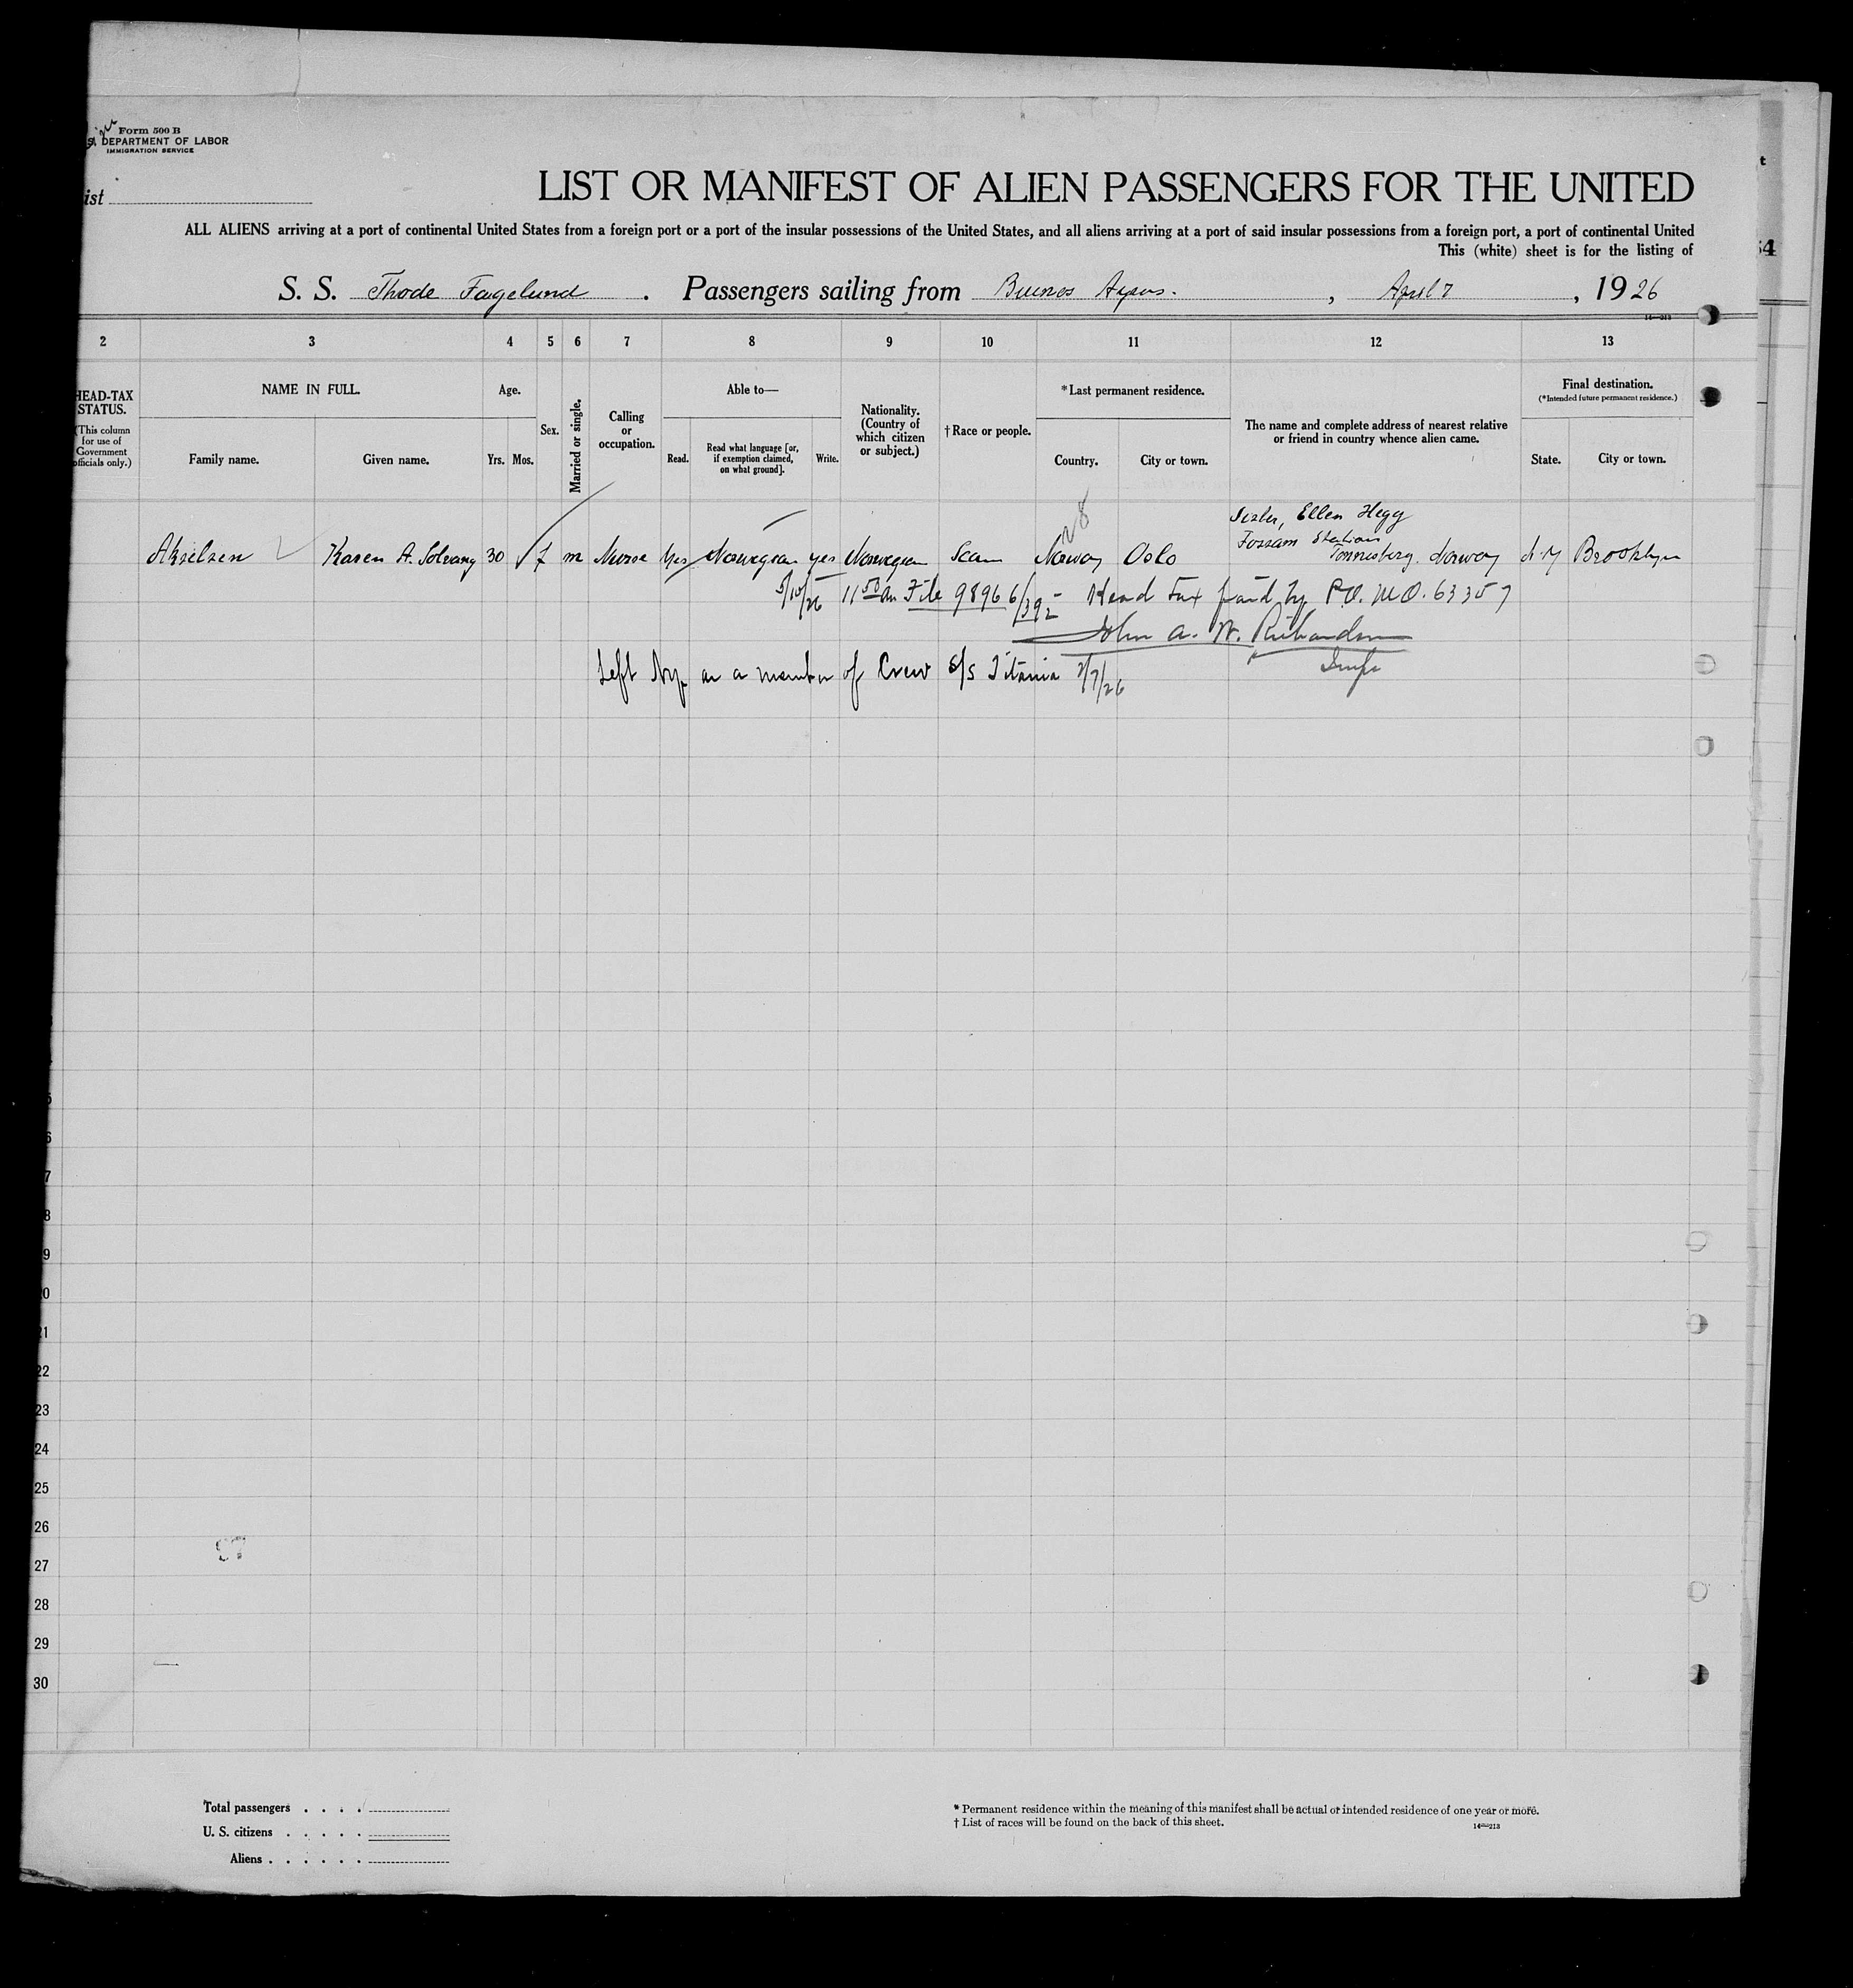 Form 500 B
DEPARTMENT OF LABOR
IMMIGRATION SERVICE
ist
LIST OR MANIFEST OF ALIEN PASSENGERS FOR THE UNITED
ALL ALIENS arriving at a port of continental United States from a foreign port or a port of the insular possessions of the United States, and all aliens arriving at a port of said insular possessions from a foreign port, a port of continental United
This (white) sheet is for the listing of
S. S. Thode Fagelund . Passengers sailing from Buenos Ayres. , April 7 , 1926
14—213
2 3 4 5 6 7 8 9 10 11 12 13
HEAD-TAX STATUS.
(This column for use of Government officials only.)
NAME IN FULL.
Family name. Given name.
Age.
Yrs. Mos.
Sex.
Married or single.
Calling or occupation.
Able to—
Read. Read what language [or, if exemption claimed, on what ground]. Write.
Nationality. (Country of which citizen or subject.)
† Race or people.
*Last permanent residence.
Country. City or town.
The name and complete address of nearest relative or friend in country whence alien came.
Final destination.
(*Intended future permanent residence.)
State. City or town.
Sister, Ellen Hegg
Fossam Station
Akselsen Karen A. Solvang 30 f m Nurse Yes Norwegian yes Norwegian Scan Norway Oslo Tonnesberg. Norway N.Y Brooklyn
5/10/26 11 50 am File 98966/392 Head Tax paid by P.O. M.O. 63357
John A. W. Richardson
Left Ny. as a member of Crew S/S Titania /7/26 Insp
5
6
7
8
9
20
21
22
23
24
25
26
97
27
28
29
30
Total passengers . . . .
U. S. citizens . . . . .
Aliens . . . . . .
* Permanent residence within the meaning of this manifest shall be actual or intended residence of one year or more.
† List of races will be found on the back of this sheet.
14—213